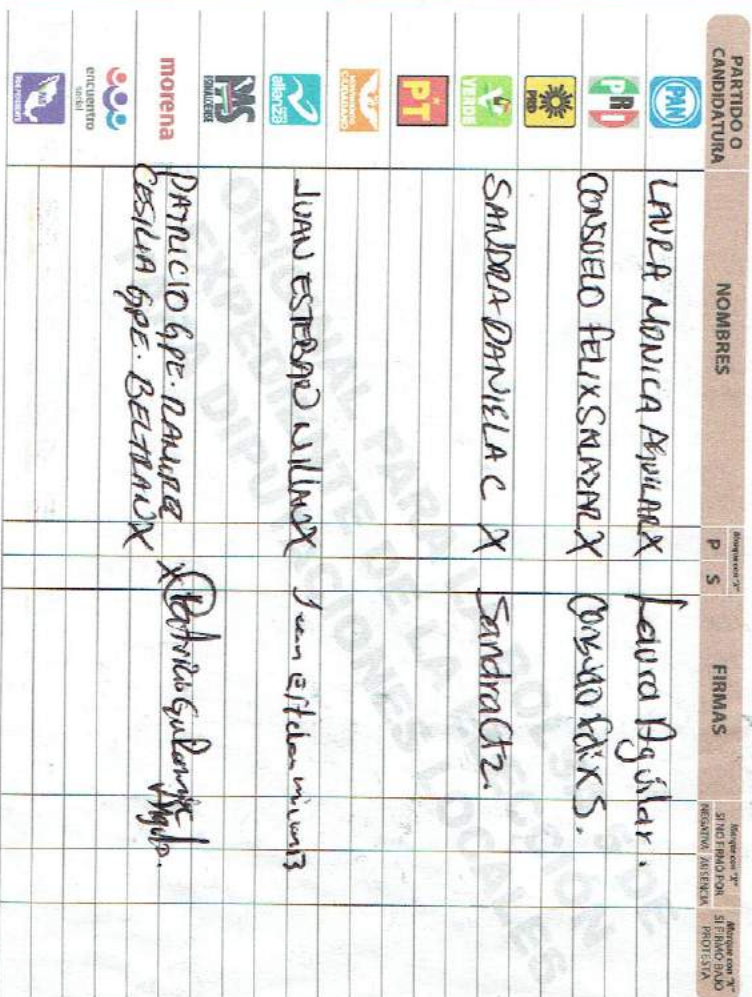 PARTIDO O CANDIDATURA NOMBRES Marque con "X" P S FIRMAS Marque con "X" SI NO FIRMÓ POR NEGATIVA AUSENCIA Marque con "X" SI FIRMÓ BAJO PROTESTA
PAN LAURA MONICA AGUILAR X Laura Aguilar.
PRI CONSUELO FELIX SALAZAR X Consuelo Felix S.
PRD
VERDE SANDRA DANIELA C X Sandra
PT
MOVIMIENTO CIUDADANO
alianza JUAN ESTEBAN X Juan
PAS SINALOENSE
morena PATRICIO GPE. RAMIREZ X Patricio Angulo.
CESILIA GPE. BELTRAN X
encuentro social
ORIGINAL PARA LA BOLSA DE
EXPEDIENTE DE LA ELECCIÓN
PARA DIPUTACIONES LOCALES